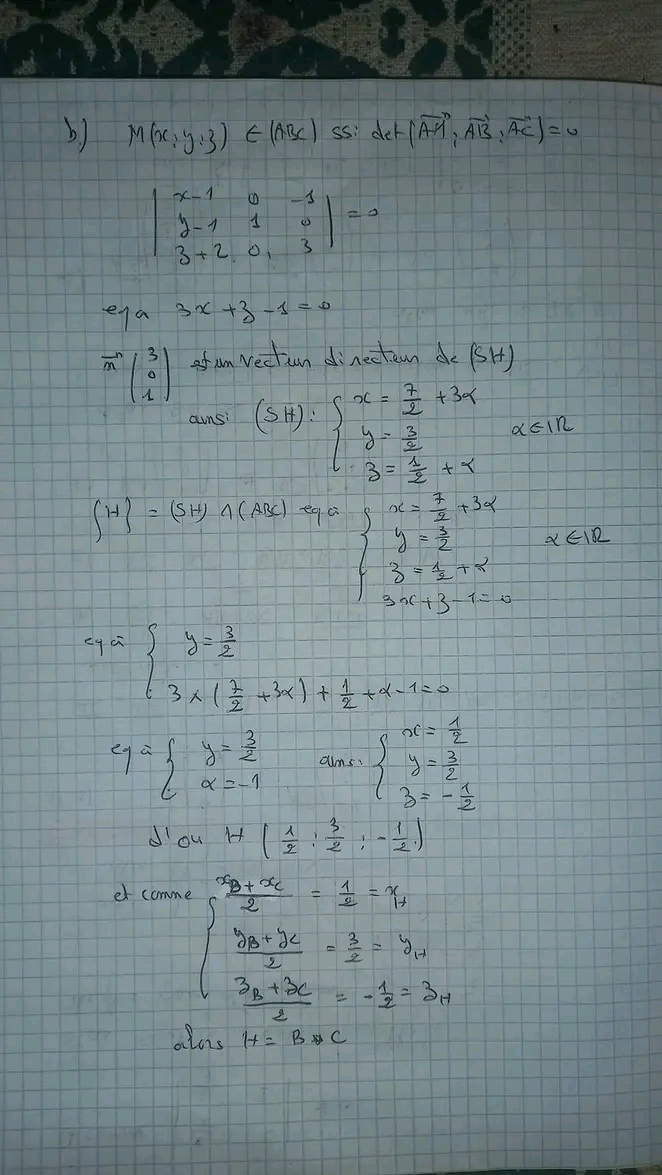 b) M(x;y;z) ∈ (ABC) ssi det(AM⃗; AB⃗; AC⃗) = 0
| x-1 0 -1 |
| y-1 1 0 | = 0
| z+2 0 3 |
eq à 3x + z - 1 = 0
n⃗ (3 0 1) est un vecteur directeur de (SH)
ainsi (SH): { x = 7/2 + 3α
y = 3/2 α ∈ IR
z = 1/2 + α
{H} = (SH) ∩ (ABC) eq à { x = 7/2 + 3α
y = 3/2 α ∈ IR
z = 1/2 + α
3x + z - 1 = 0
eq à { y = 3/2
3 × (7/2 + 3α) + 1/2 + α - 1 = 0
eq à { y = 3/2 ainsi { x = 1/2
α = -1 y = 3/2
z = -1/2
d'où H (1/2 ; 3/2 ; -1/2)
et comme { (xB + xC)/2 = 1/2 = xH
(yB + yC)/2 = 3/2 = yH
(zB + zC)/2 = -1/2 = zH
alors H = B * C